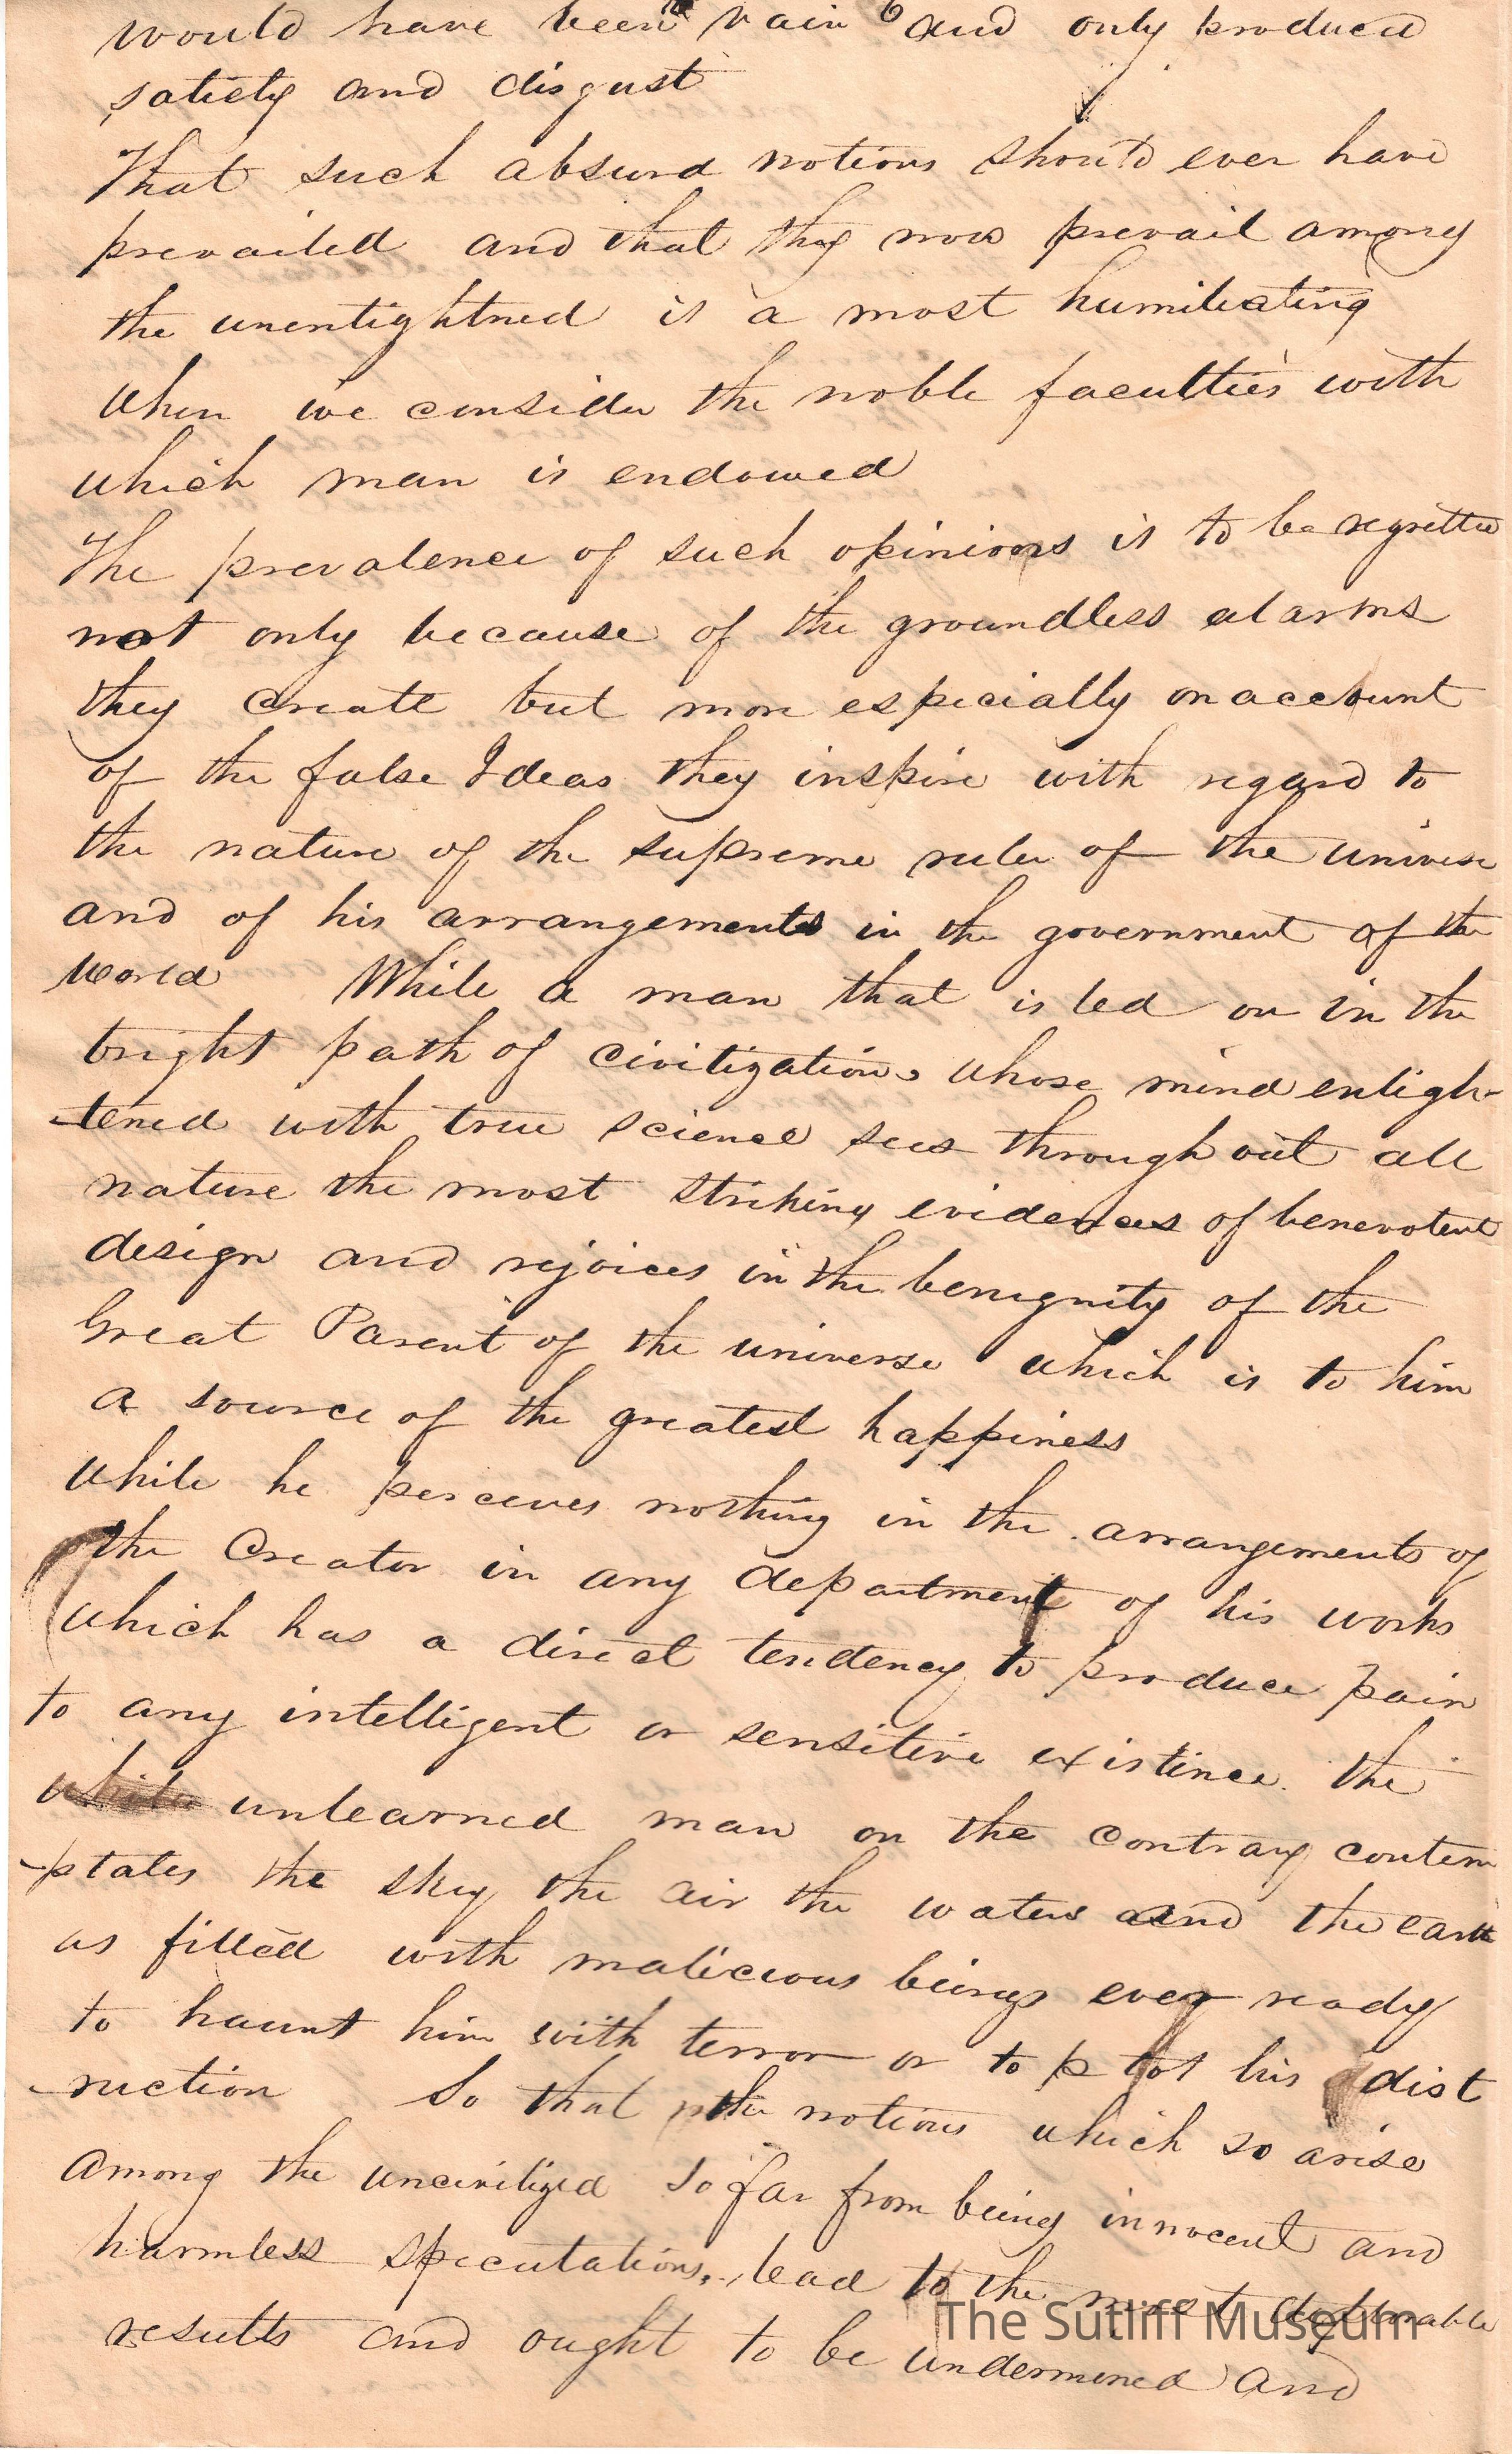 would have been vain and only produced
satiety and disgust
That such absurd notions should ever have
prevailed and that they now prevail among
the unenlightned is a most humiliating
when we consider the noble faculties with
which man is endowed
The prevalence of such opinions is to be regretted
not only because of the groundless alarms
they create but more especially on account
of the false Ideas they inspire with regard to
the nature of the supreme ruler of the universe
and of his arrangements in the government of the
world While a man that is led on in the
bright path of civilization, whose mind enligh-
-tened with true science sees through out all
nature the most striking evidences of benevolent
design and rejoices in the benignity of the
Great Parent of the universe which is to him
a source of the greatest happiness
while he perceives nothing in the arrangements of
the Creator in any department of his works
which has a direct tendency to produce pain
to any intelligent or sensitive existence. the
while unlearned man on the contrary contem
-plates the sky the air the waters and the earth
as filled with malicious beings ever ready
to haunt him with terror or to plot his dist
-ruction So that the notions which so arise
among the uncivilized so far from being innocent and
harmless speculations, lead to the most deplorable
results and ought to be undermined and
The Sutliff Museum